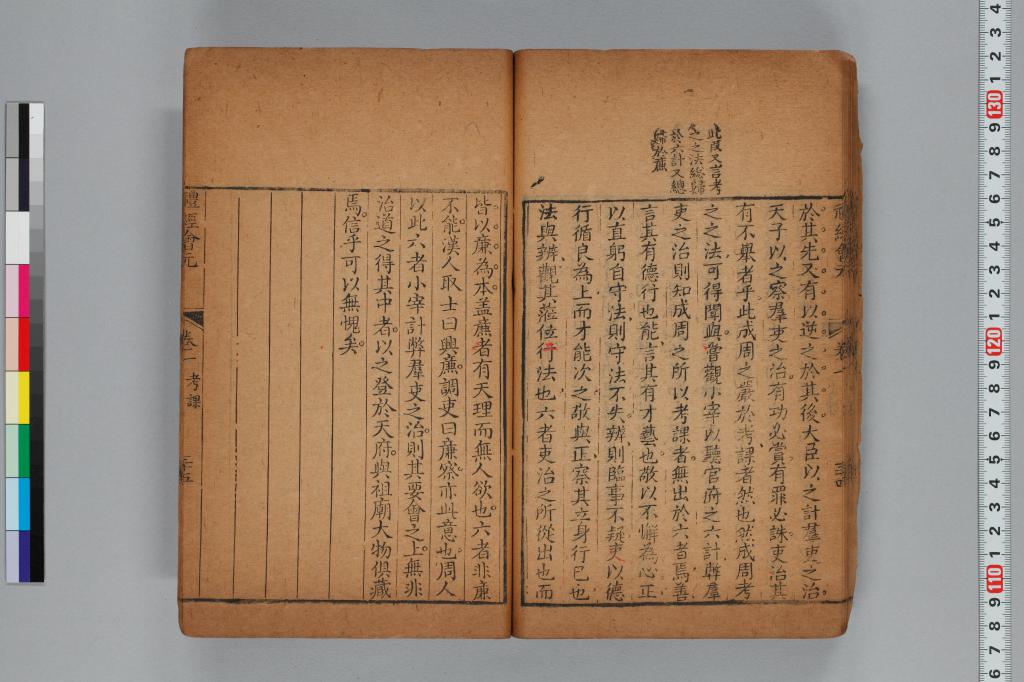 此段又言考
之之法総歸
於六計又總
歸於㢘
於其先又有以逆之於其後大臣以之計羣吏之治
天子以之察羣吏之治有功必賞有罪必誅吏治其
有不舉者乎此成周之嚴於考課者然也然成周考
之之法可得聞與嘗觀小宰以聽官府之六計弊羣
吏之治則知成周之所以考課者無出於六者焉善
言其有德行也能言其有才藝也敬以不懈為心正
以直躬自守法則守法不失辨則臨事不疑吏以德
行循良為上而才能次之敬與正察其立身行已也
法與辨觀其蒞位行法也六者吏治之所從出也而
皆以廉為本盖㢘者有天理而無人欲也六者非廉
不能漢人取士曰興㢘調吏曰廉察亦此意也周人
以此六者小宰計弊羣吏之治則其要會之上無非
治道之得其中者以之登於天府與祖廟大物俱藏
焉信乎可以無愧矣
禮經會元
卷一
考課